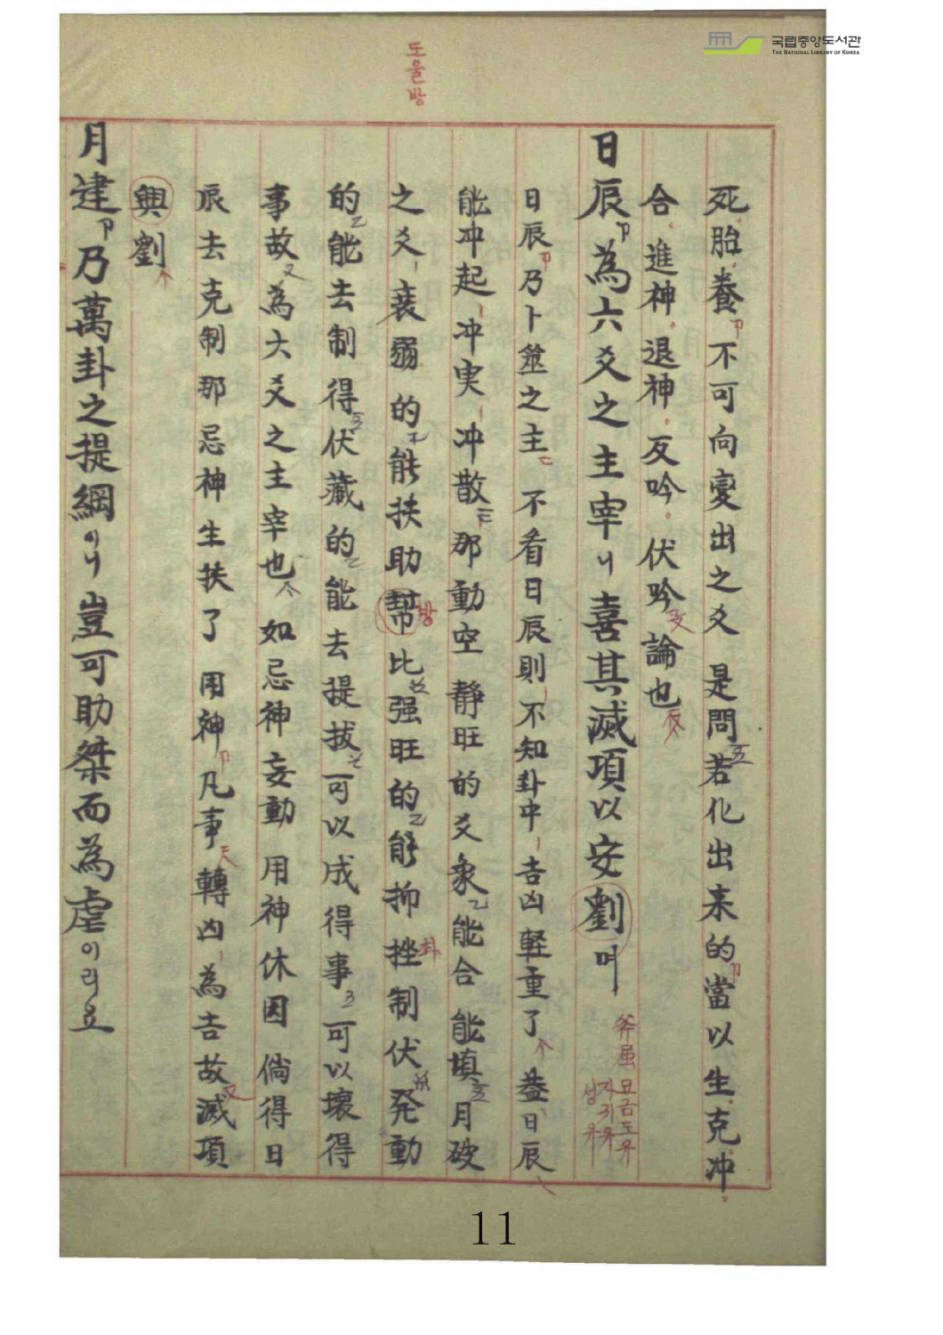 국립중앙도서관
THE NATIONAL LIBRARY OF KOREA
도울방
死胎養 不可向變出之爻 是問 若化出来的當以生克冲
合 進神 退神 反吟 伏吟 論也
日辰 為六爻之主宰 喜其滅項以安劉
日辰乃卜筮之主 不看日辰則不知卦中吉凶軽重了 盖日辰
能冲起 冲実 冲散 那動空 静旺的爻象 能合 能填 月破
之爻 衰弱的 能扶助幇比 强旺的 能抑挫制伏 発動
的 能去制得 伏藏的 能去提拔 可以成得事 可以壞得
事故 為六爻之主宰也 如忌神妄動 用神休囚 倘得日
辰去克制那忌神生扶了用神 凡事轉凶為吉故 滅項
興劉
月建 乃萬卦之提綱 豈可助桀而為虐이리요
방
卦
11